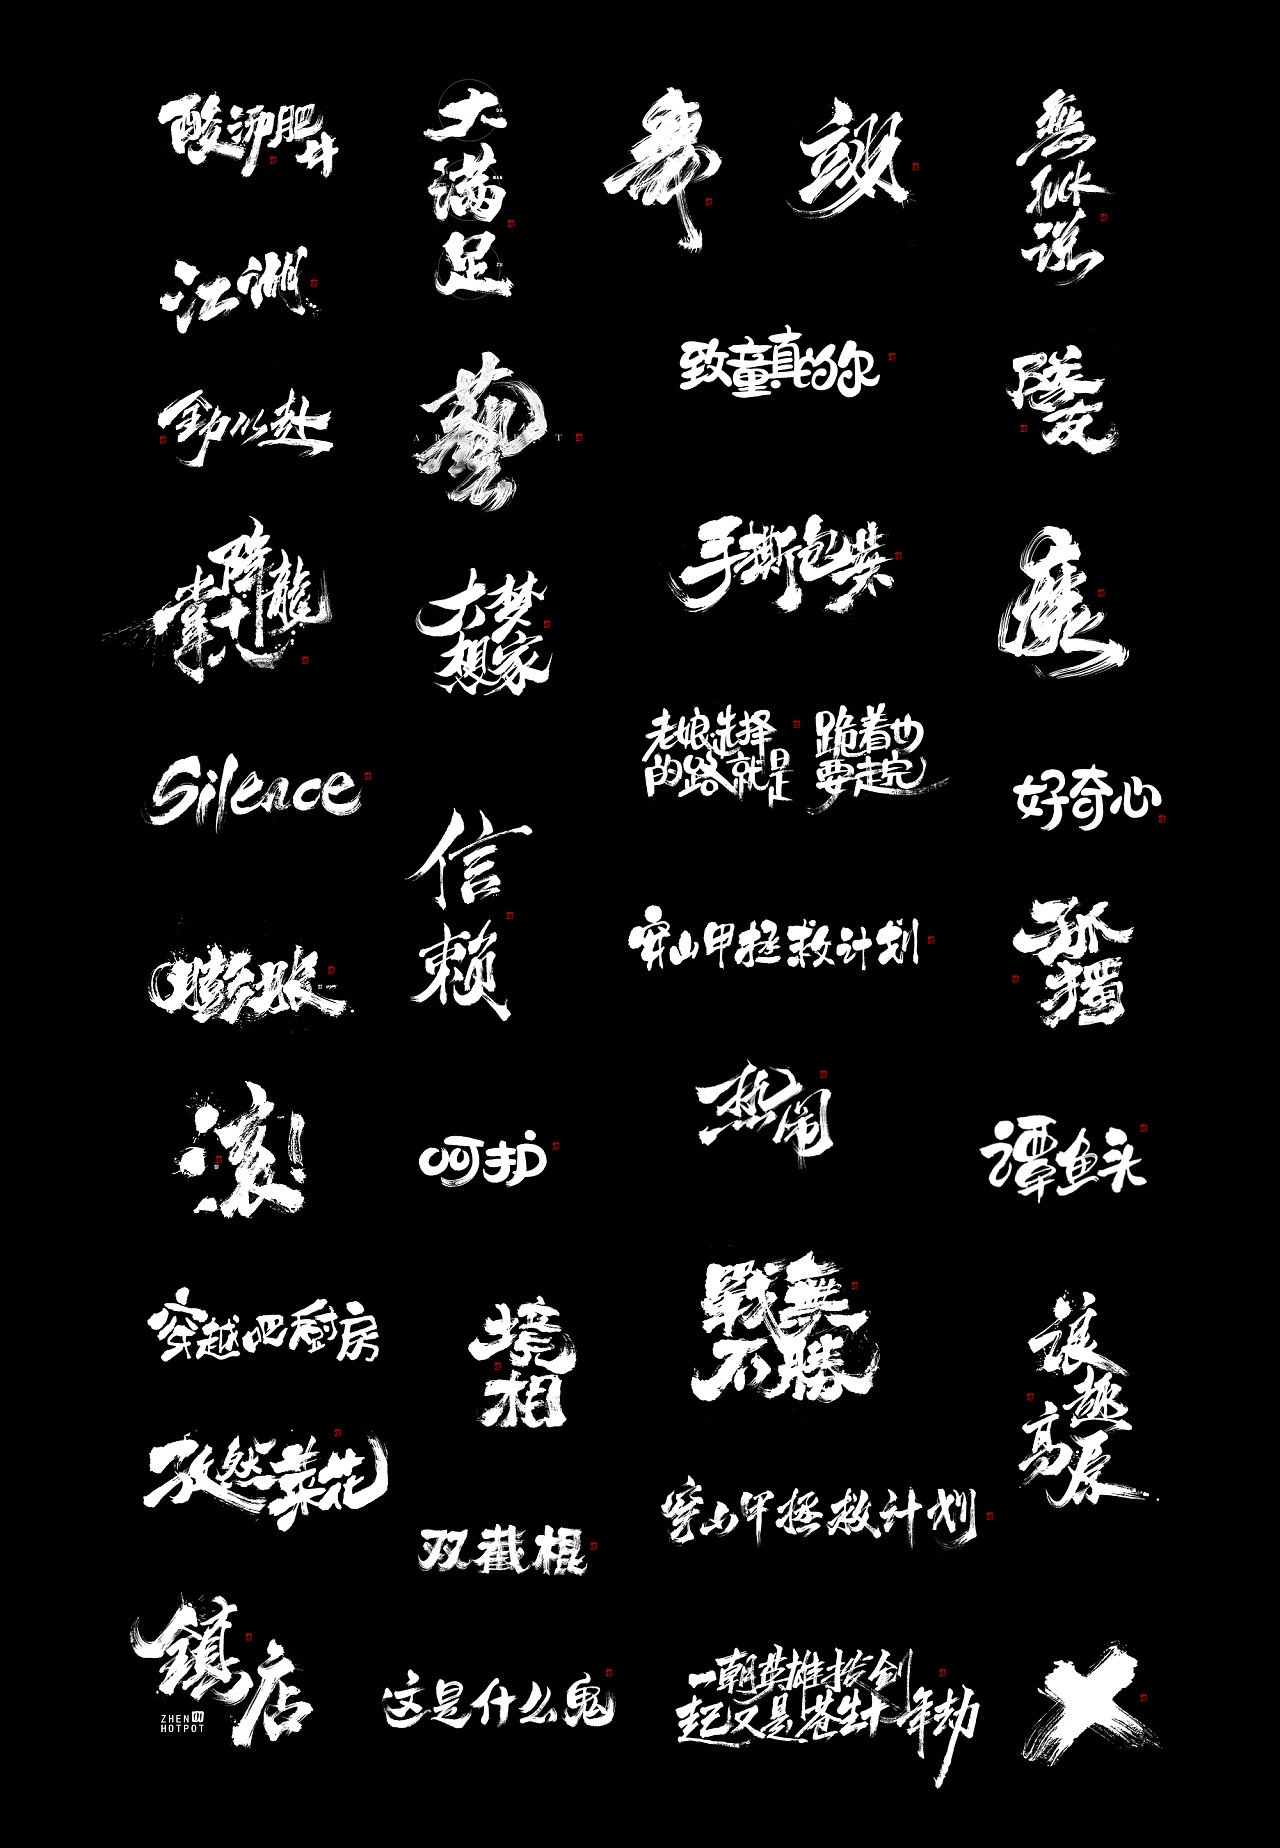 酸汤肥牛
大
满
足
DA
MAN
ZU
舞
翊
無
狱
说
江湖
致童真的你
隧
友
剑以赴
藝
降龍
十八
掌
手撕包装
大梦
想家
老娘选择
的路就是
跪着也
要走完
Silence
好奇心
信
赖
穿山甲拯救计划
孤
獨
膨胀
热闹
滚!
呵护
谭鱼头
穿越吧厨房
境
相
戰無
不勝
浪
趣
高
原
孜然菜花
穿山甲拯救计划
双截棍
鎮
店
ZHEN
HOTPOT
这是什么鬼
一朝英雄拔剑
起又是苍生十年劫